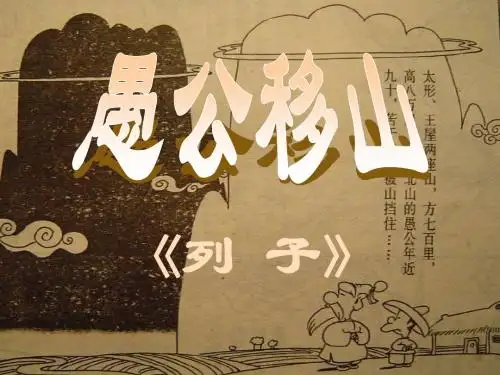 愚公移山
《列 子》
太形、王屋两座山，方七百里，
高八 北山的愚公年近
九十，苦 被山挡住……